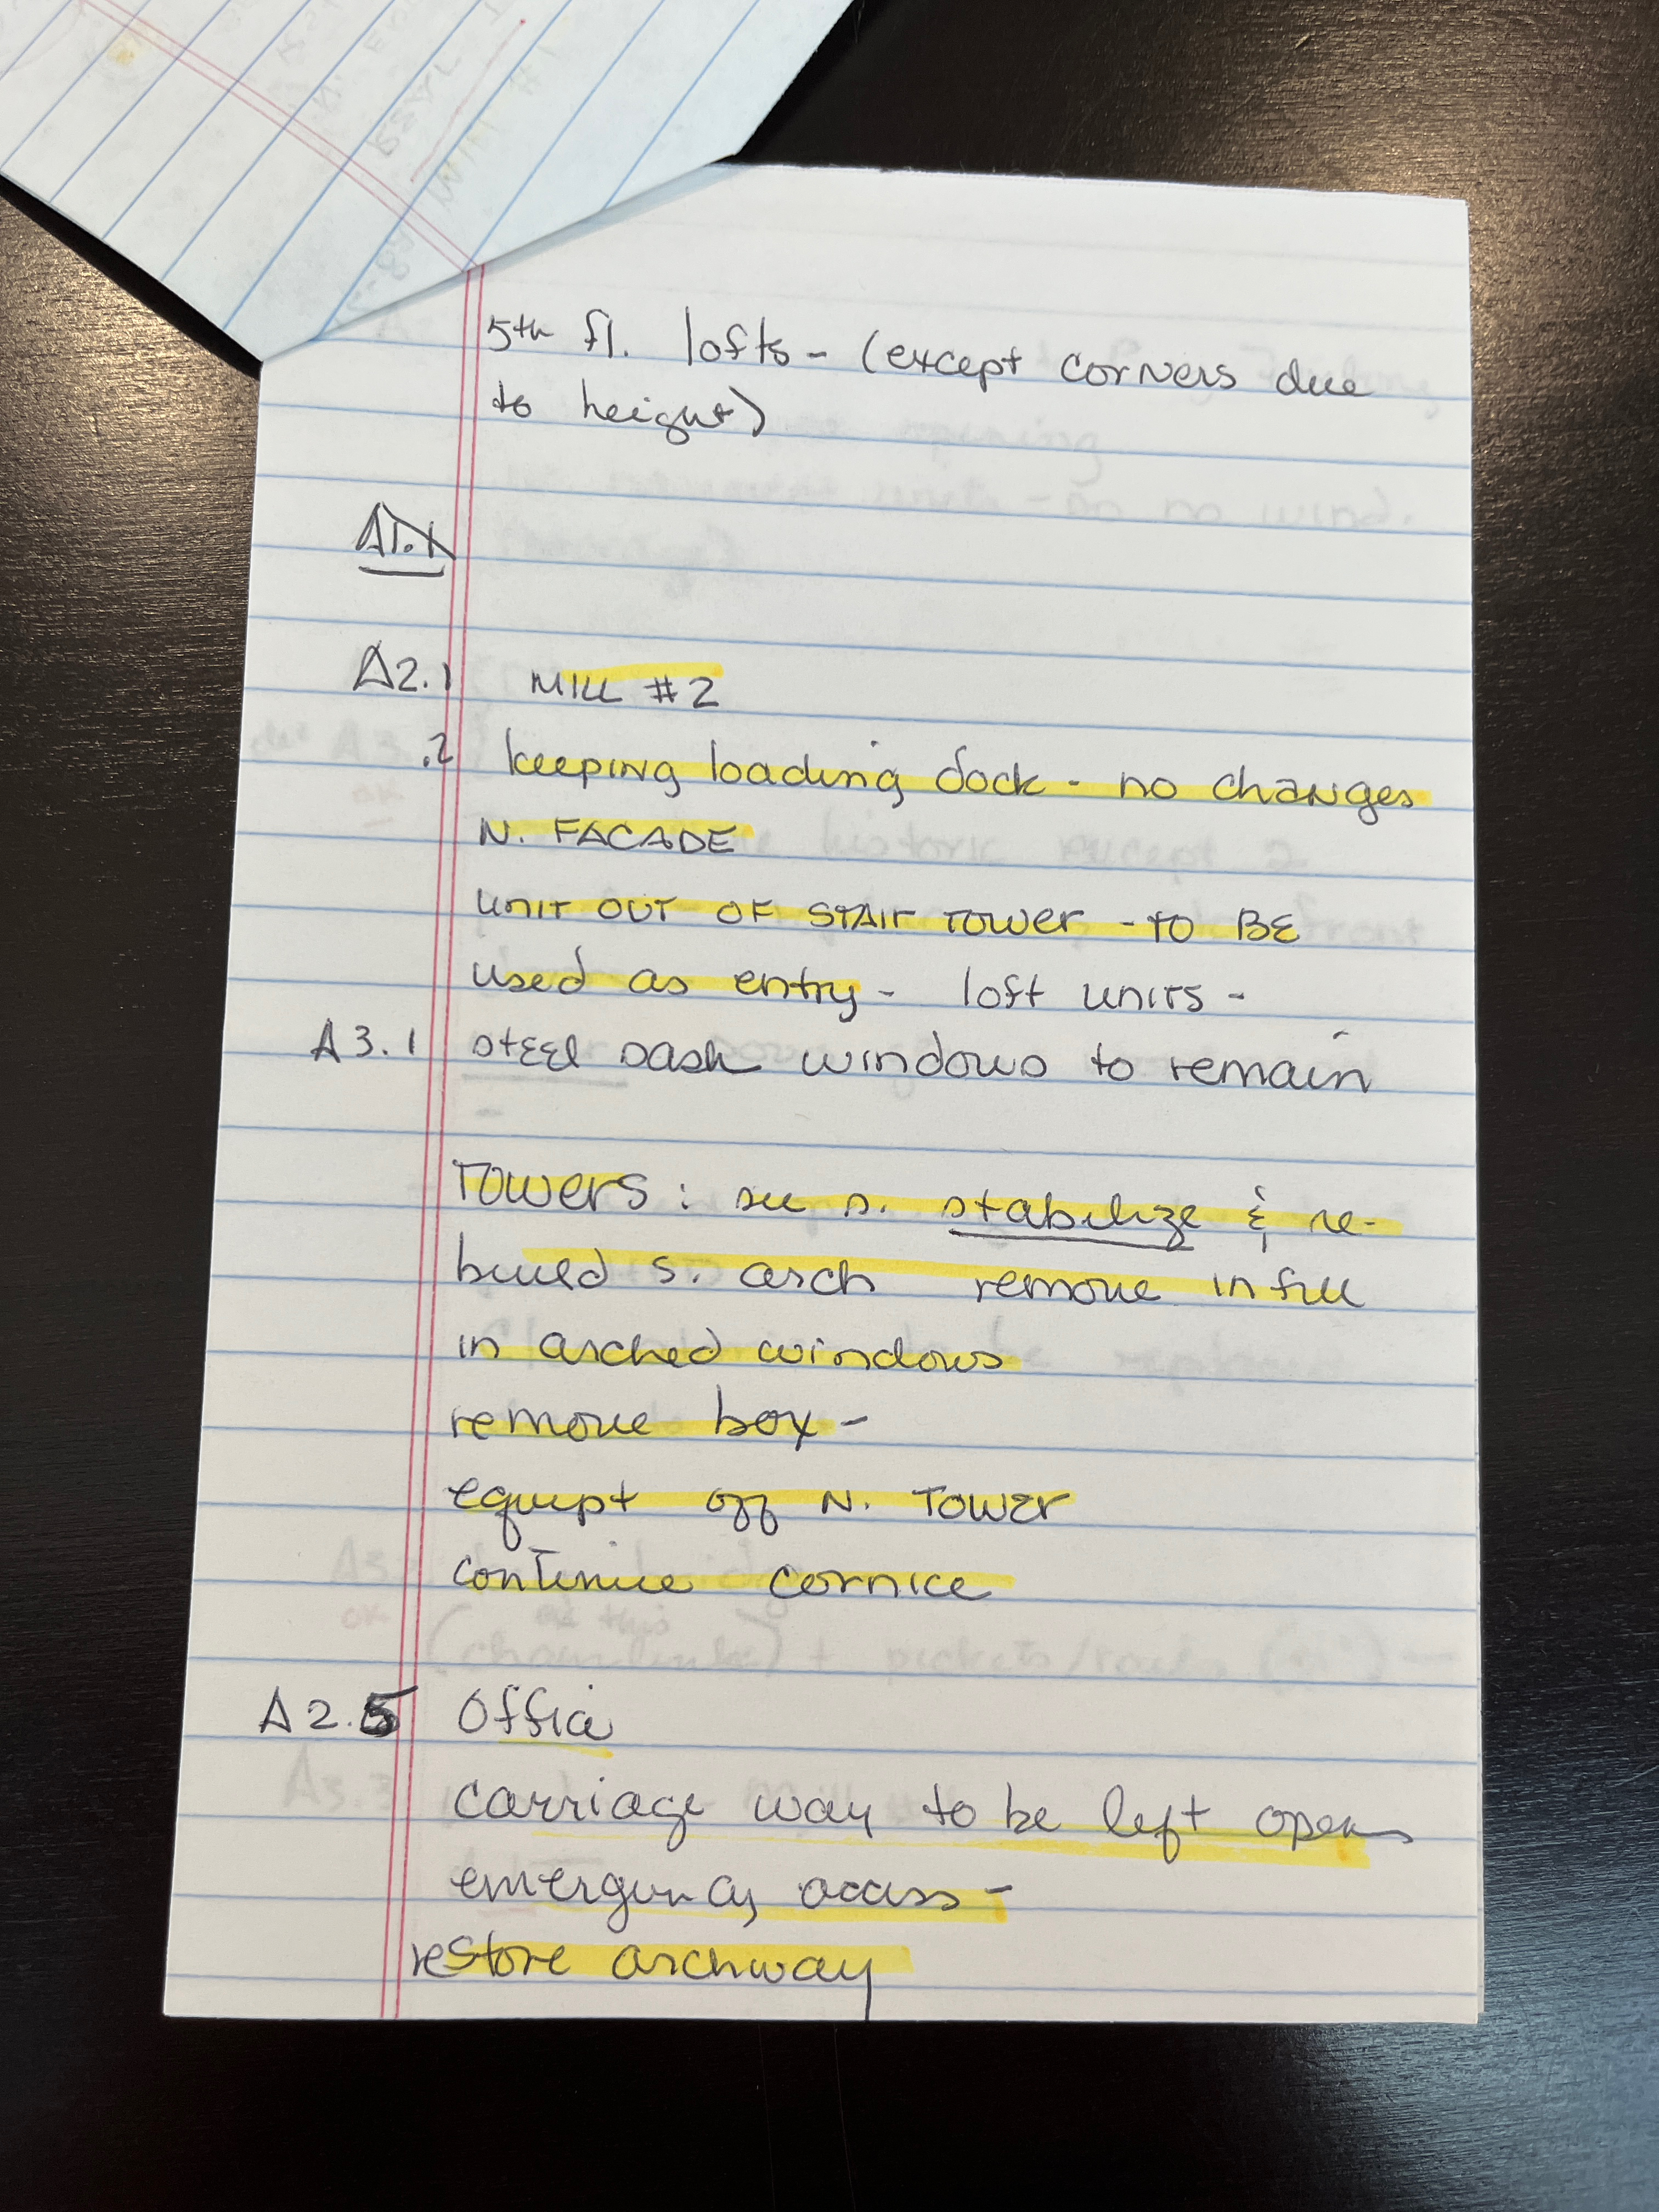 5th fl. lofts - (except corners due
to height)
A2.1 MILL #2
.2 keeping loading dock - no changes
N. FACADE
UNIT OUT OF STAIR TOWER - TO BE
used as entry - loft units -
A3.1 steel sash windows to remain
TOWERS : see s. stabilize & re-
build s. arch remove infill
in arched windows
remove box -
equipt off N. TOWER
continue cornice
A2.5 Office
carriage way to be left open
emergency access -
restore archway